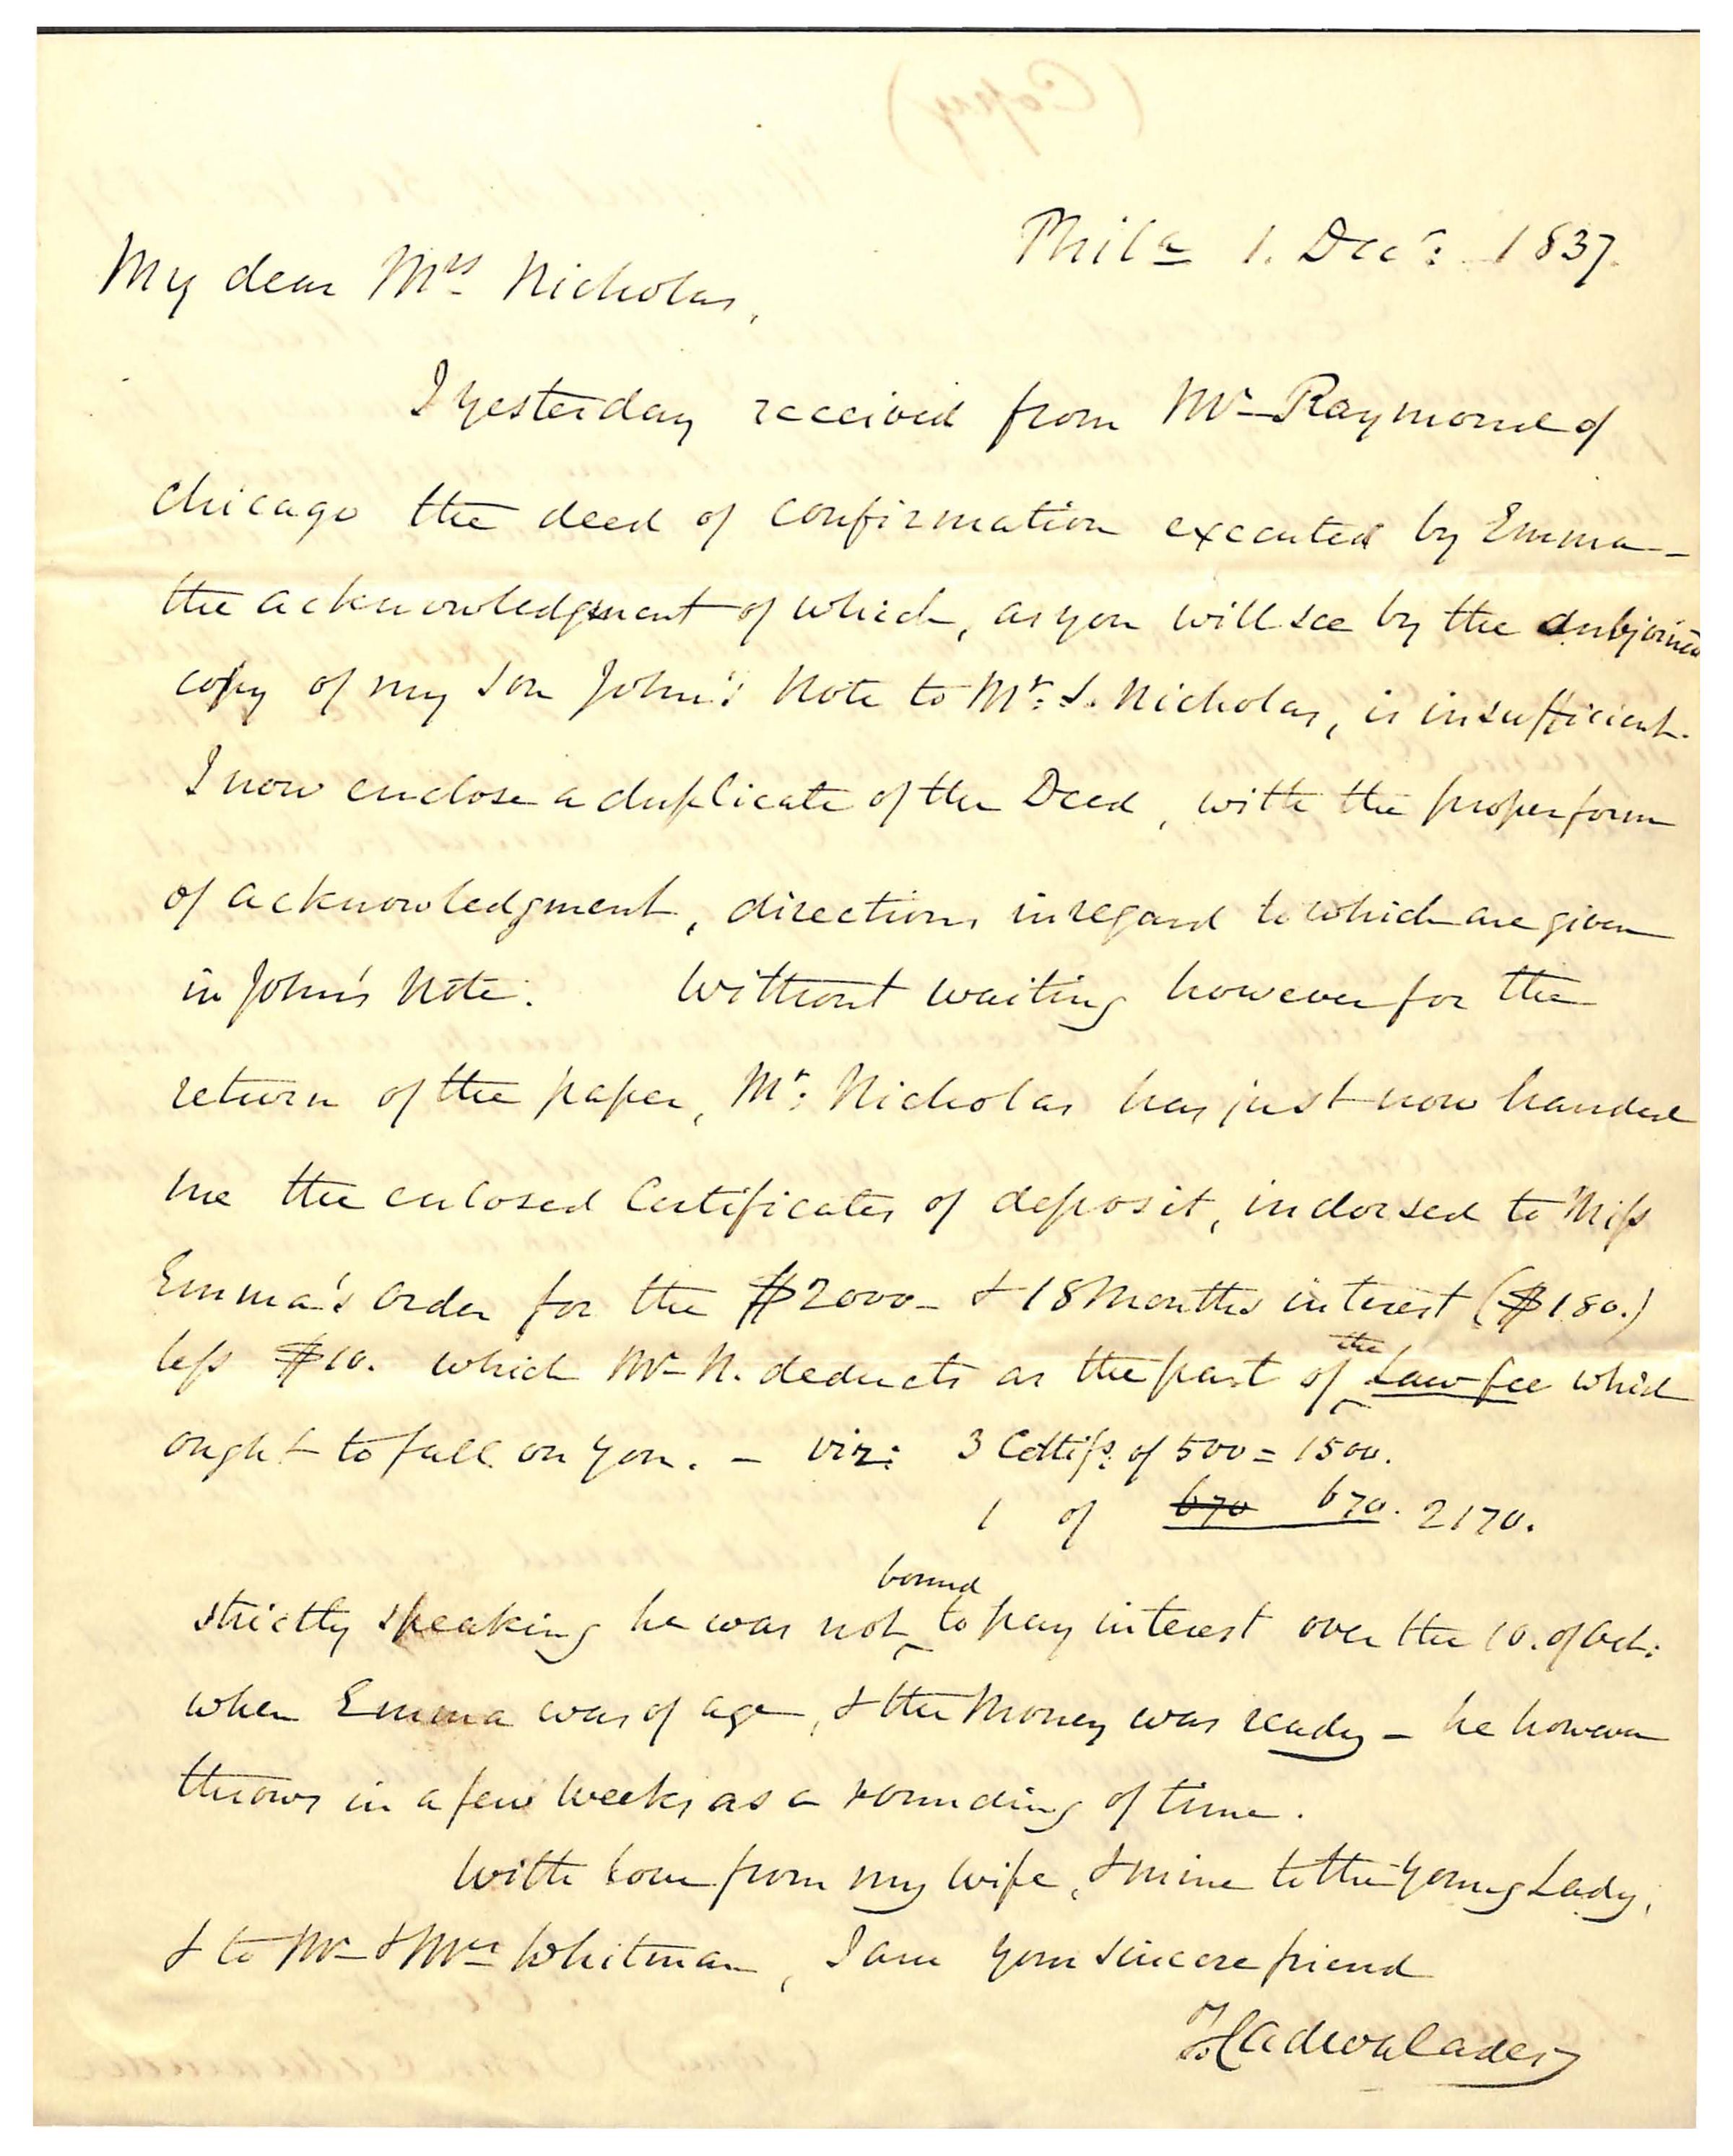 Phila 1. Decr: 1837.
My dear Mrs Nicholas,
I yesterday received from Mr Raymond of
Chicago the deed of confirmation executed by Emma—
the acknowledgment of which, as you will see by the subjoined
copy of my son John's Note to Mr: S. Nicholas, is insufficient.
I now enclose a duplicate of the Deed, with the proper form
of acknowledgment, directions in regard to which are given
in John's Note. Without waiting however for the
return of the paper, Mr: Nicholas has just now handed
me the enclosed Certificates of deposit, indorsed to Miss
Emma's order for the $2000— & 18 Months interest ($180.)
less $10. which Mr N. deducts as the part of the Law fee which
ought to fall on you. — viz: 3 Certifs: of 500 = 1500.
1 of 670 670. 2170.
strictly speaking he was not bound to pay interest over the 10. of Oct:
when Emma was of age, & the Money was ready — he however
throws in a few weeks as a rounding of time.
With love from my wife, & mine to the Young Lady,
& to Mr & Mrs Whitman, I am your sincere friend
T. Cadwalader
(Copy)